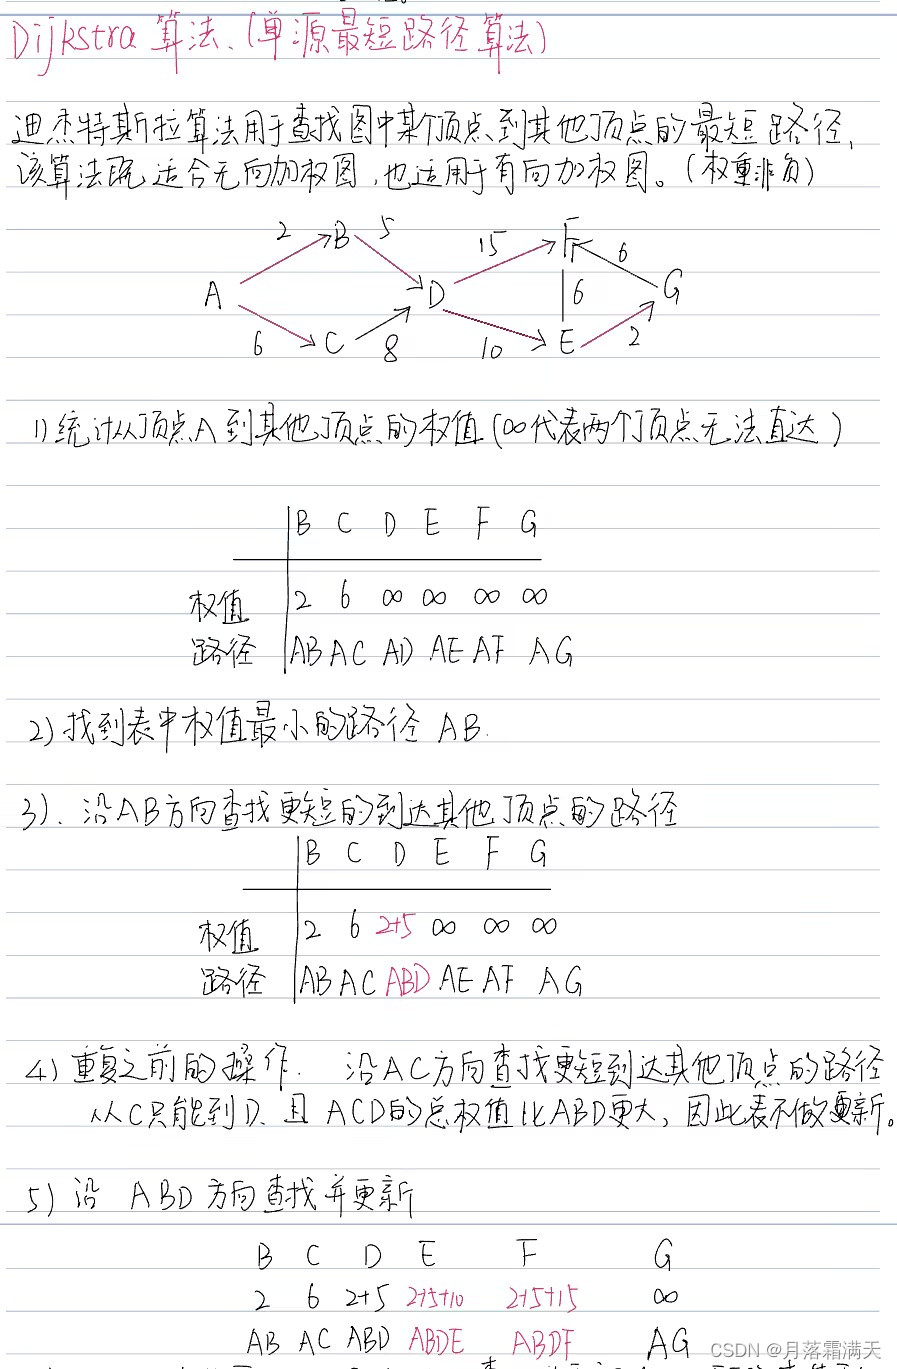 Dijkstra 算法、(单源最短路径算法)
迪杰特斯拉算法用于查找图中某个顶点到其他顶点的最短路径,
该算法既适合无向加权图,也适用于有向加权图。(权重非负)
2 B 5 15 F 6
A D 6 G
6 C 8 10 E 2
1) 统计从顶点A到其他顶点的权值 (∞代表两个顶点无法直达)
B C D E F G
权值 2 6 ∞ ∞ ∞ ∞
路径 AB AC AD AE AF AG
2) 找到表中权值最小的路径 AB.
3). 沿AB方向查找更短的到达其他顶点的路径
B C D E F G
权值 2 6 2+5 ∞ ∞ ∞
路径 AB AC ABD AE AF AG
4) 重复之前的操作. 沿AC方向查找更短到达其他顶点的路径
从C只能到D、且 ACD的总权值比ABD更大, 因此表不做更新。
5) 沿 ABD 方向查找并更新
B C D E F G
2 6 2+5 2+5+10 2+5+15 ∞
AB AC ABD ABDE ABDF AG
CSDN @月落霜满天